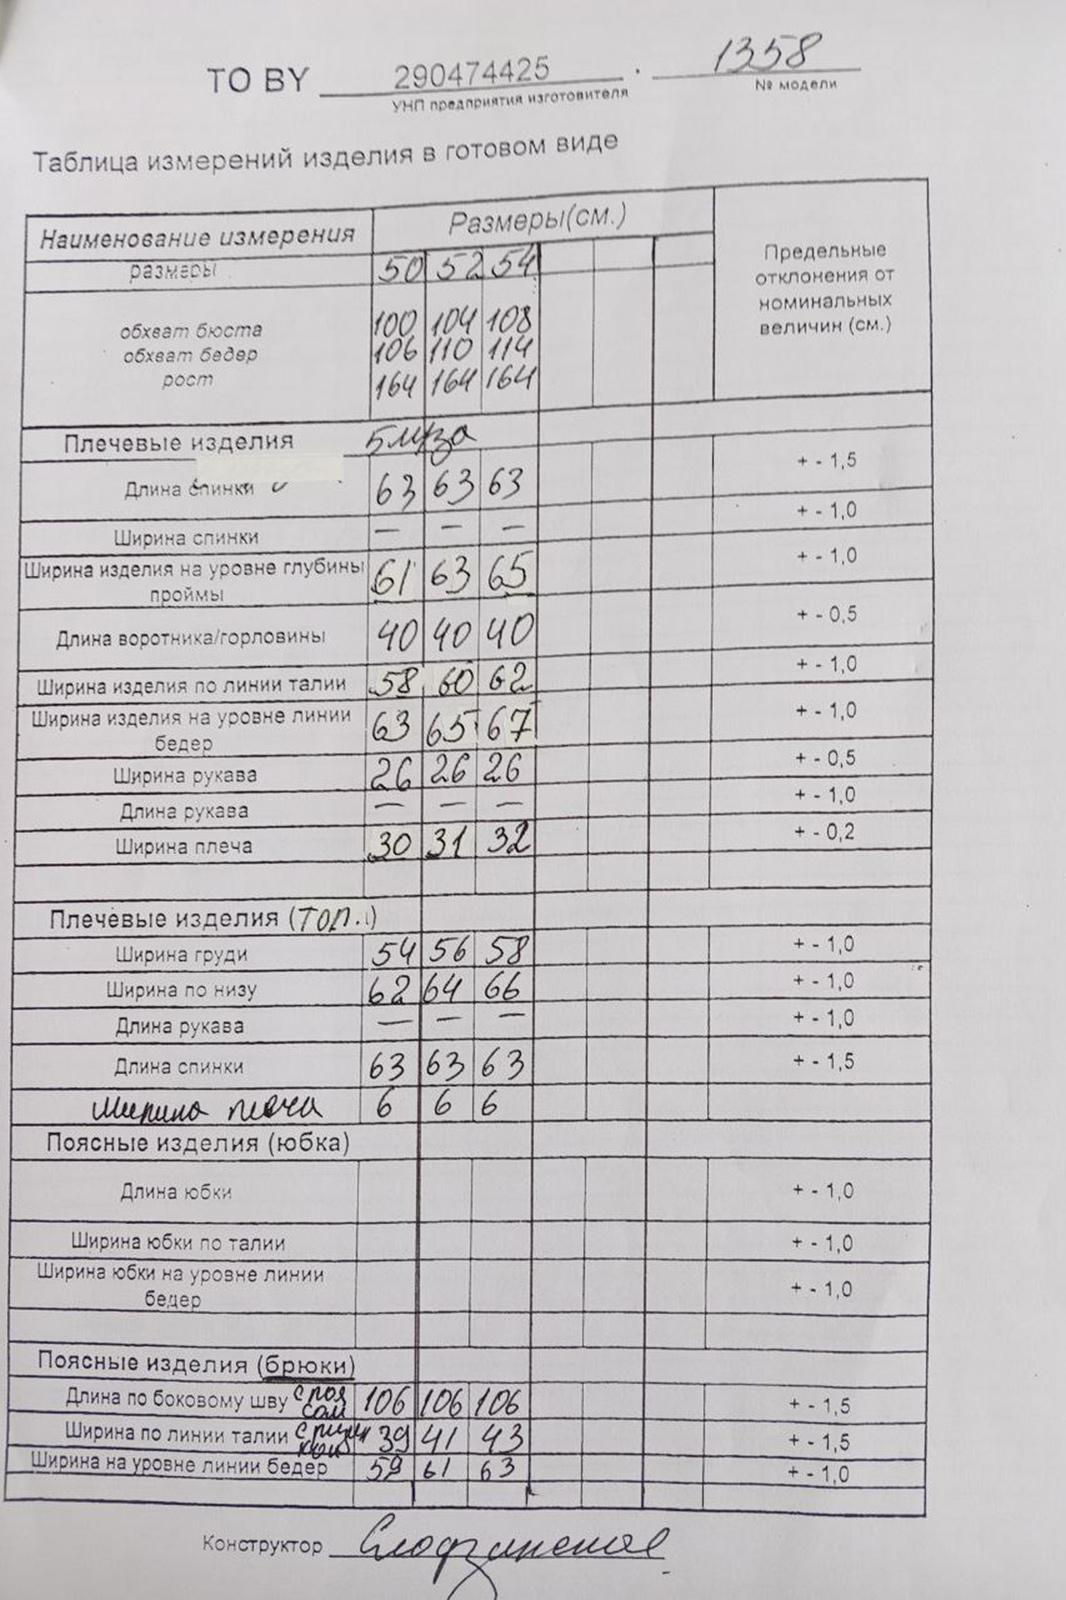 TO BY 290474425 . 1358
УНП предприятия изготовителя № модели
Таблица измерений изделия в готовом виде
Наименование измерения Размеры(см.) Предельные отклонения от номинальных величин (см.)
размеры 50 52 54
обхват бюста 100 104 108
обхват бедер 106 110 114
рост 164 164 164
Плечевые изделия блуза
Длина спинки 63 63 63 + - 1,5
Ширина спинки — — — + - 1,0
Ширина изделия на уровне глубины проймы 61 63 65 + - 1,0
Длина воротника/горловины 40 40 40 + - 0,5
Ширина изделия по линии талии 58 60 62 + - 1,0
Ширина изделия на уровне линии бедер 63 65 67 + - 1,0
Ширина рукава 26 26 26 + - 0,5
Длина рукава — — — + - 1,0
Ширина плеча 30 31 32 + - 0,2
Плечевые изделия (топ.)
Ширина груди 54 56 58 + - 1,0
Ширина по низу 62 64 66 + - 1,0
Длина рукава — — — + - 1,0
Длина спинки 63 63 63 + - 1,5
Ширина плеча 6 6 6
Поясные изделия (юбка)
Длина юбки + - 1,0
Ширина юбки по талии + - 1,0
Ширина юбки на уровне линии бедер + - 1,0
Поясные изделия (брюки)
Длина по боковому шву с поясом 106 106 106 + - 1,5
Ширина по линии талии с 39 41 43 + - 1,5
Ширина на уровне линии бедер 59 61 63 + - 1,0
Конструктор